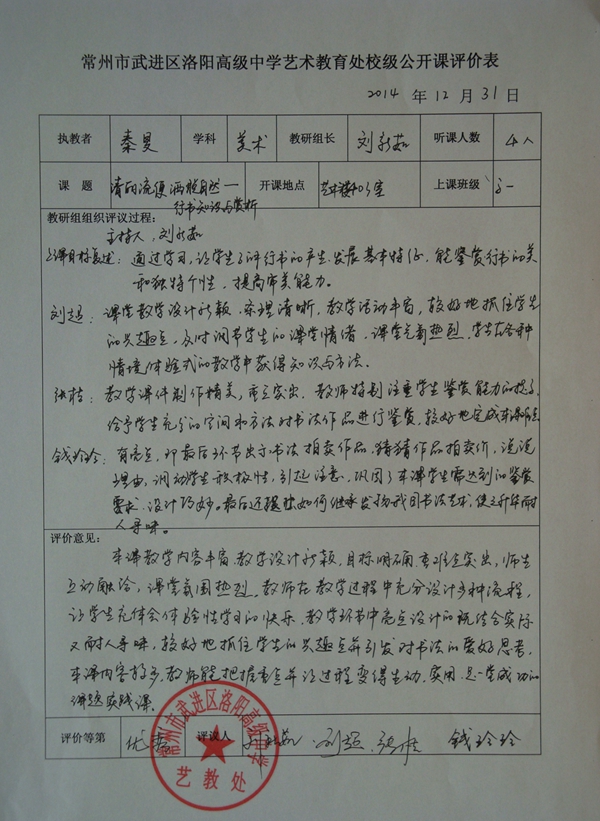 常州市武进区洛阳高级中学艺术教育处校级公开课评价表
2014 年 12 月 31 日
执教者 秦旻 学科 美术 教研组长 刘新茹 听课人数 4人
课 题 清丽流便 洒脱自然—行书知识与赏析 开课地点 艺术楼401室 上课班级 高一
教研组组织评议过程：
主持人：刘新茹
上课目标表述：通过学习，让学生了解行书的产生、发展、基本特征，能鉴赏行书的美
和独特个性，提高审美能力。
刘超：课堂教学设计新颖，条理清晰，教学活动丰富，较好地抓住学生
的兴趣点，及时调节学生的课堂情绪，课堂气氛热烈，学生在各种
情境体验式的教学中获得知识与方法。
张桂：教学课件制作精美，重点突出，教师特别注重学生鉴赏能力的提高，
给予学生充分的空间和方法对书法作品进行鉴赏，较好地完成本课
钱玲玲：有亮点，即最后环节出示书法拍卖作品，猜猜作品拍卖价，说说
理由，调动学生积极性，引起注意，巩固了本课学生需达到的鉴赏
要求，设计巧妙。最后还强调如何继承发扬我国书法艺术，使之升华而耐
人寻味。
评价意见：
本课教学内容丰富，教学设计新颖，目标明确，重难点突出，师生
互动融洽，课堂氛围热烈。教师在教学过程中充分设计多种流程，
让学生充体会体验性学习的快乐，教学环节中亮点设计的既结合实际
又耐人寻味，较好地抓住学生的兴趣点并引发对书法的爱好思考，
本课内容较多，教师能把握重点并让过程变得生动、实用，是一堂成功的
课题实践课。
评价等第 优秀 评议人 刘新茹 刘超 张桂 钱玲玲
常州市武进区洛阳高级中学
艺教处